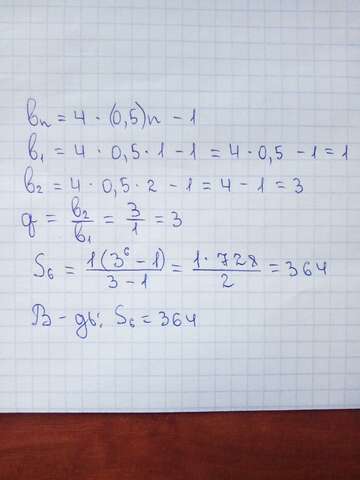 bₙ = 4 · (0,5)n − 1
b₁ = 4 · 0,5 · 1 − 1 = 4 · 0,5 − 1 = 1
b₂ = 4 · 0,5 · 2 − 1 = 4 − 1 = 3
q = b₂/b₁ = 3/1 = 3
S₆ = 1(3⁶ − 1)/3 − 1 = 1 · 728/2 = 364
В − дь: S₆ = 364